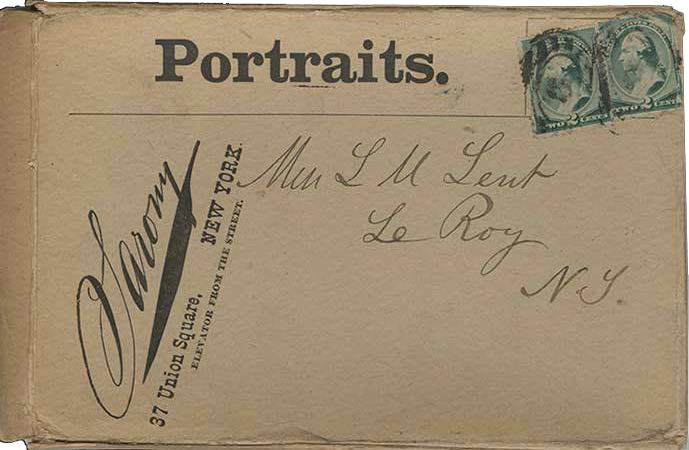 Portraits.
TWO 2 CENTS
TWO 2 CENTS
Sarony
37 Union Square, NEW YORK.
ELEVATOR FROM THE STREET.
Miss L M Lent
Le Roy
N.Y.